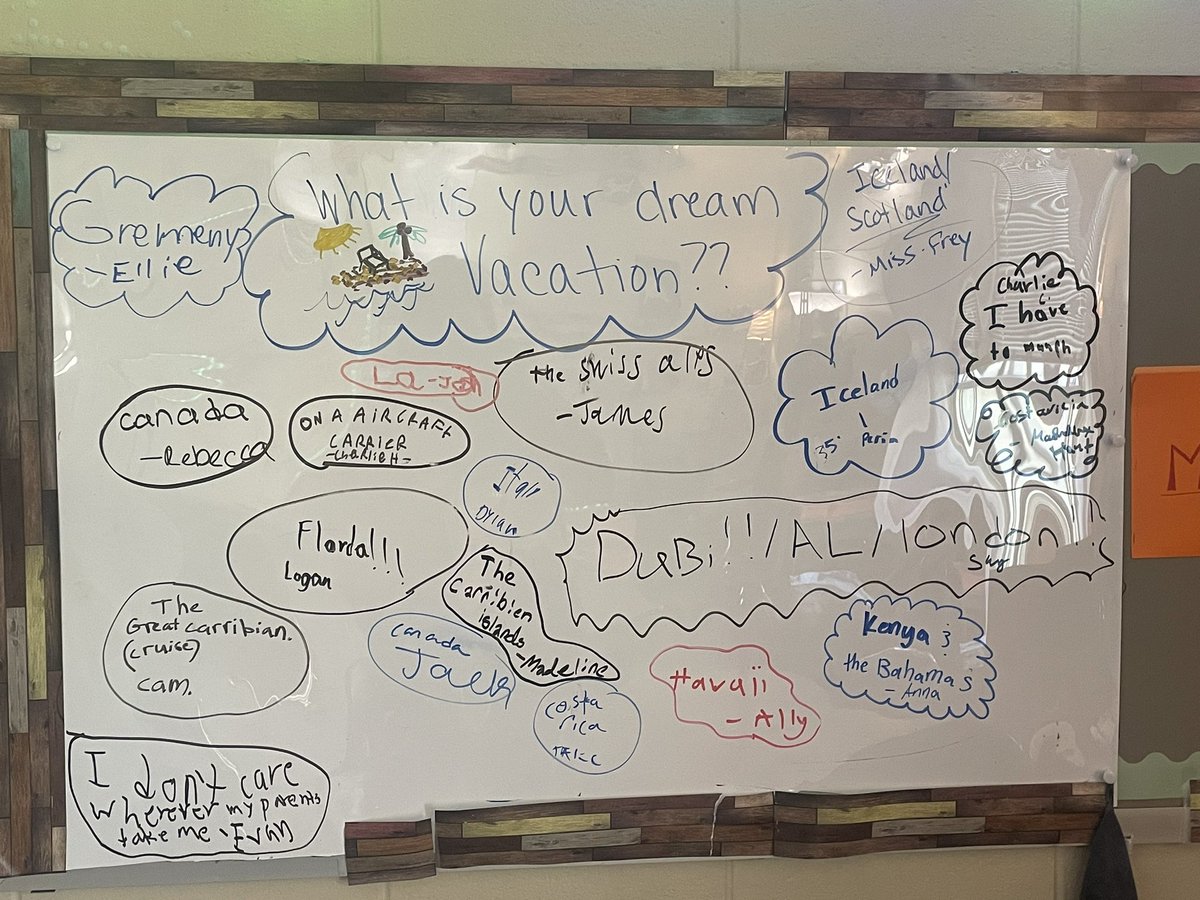 What is your dream
Vacation??
Gremeny
-Ellie
Iceland/
Scotland
-Miss. Frey
Charlie
I have
to
LA-Josh
the swiss alps
-James
Iceland
canada
-Rebecca
ON A AIRCRAFT
CARRIER
-CHARLIE H-
Itali
Dylan
Flordal!!!
Logan
DuBi!!/AL/london!!
The
Carribien
islands
-Madeline
The
Great carribian.
(cruise)
cam.
canada
Jack
costa
rica
Havaii
- Ally
Kenya &
the Bahama's
- Anna
I don't care
wherever my parents
take me - Evan
M